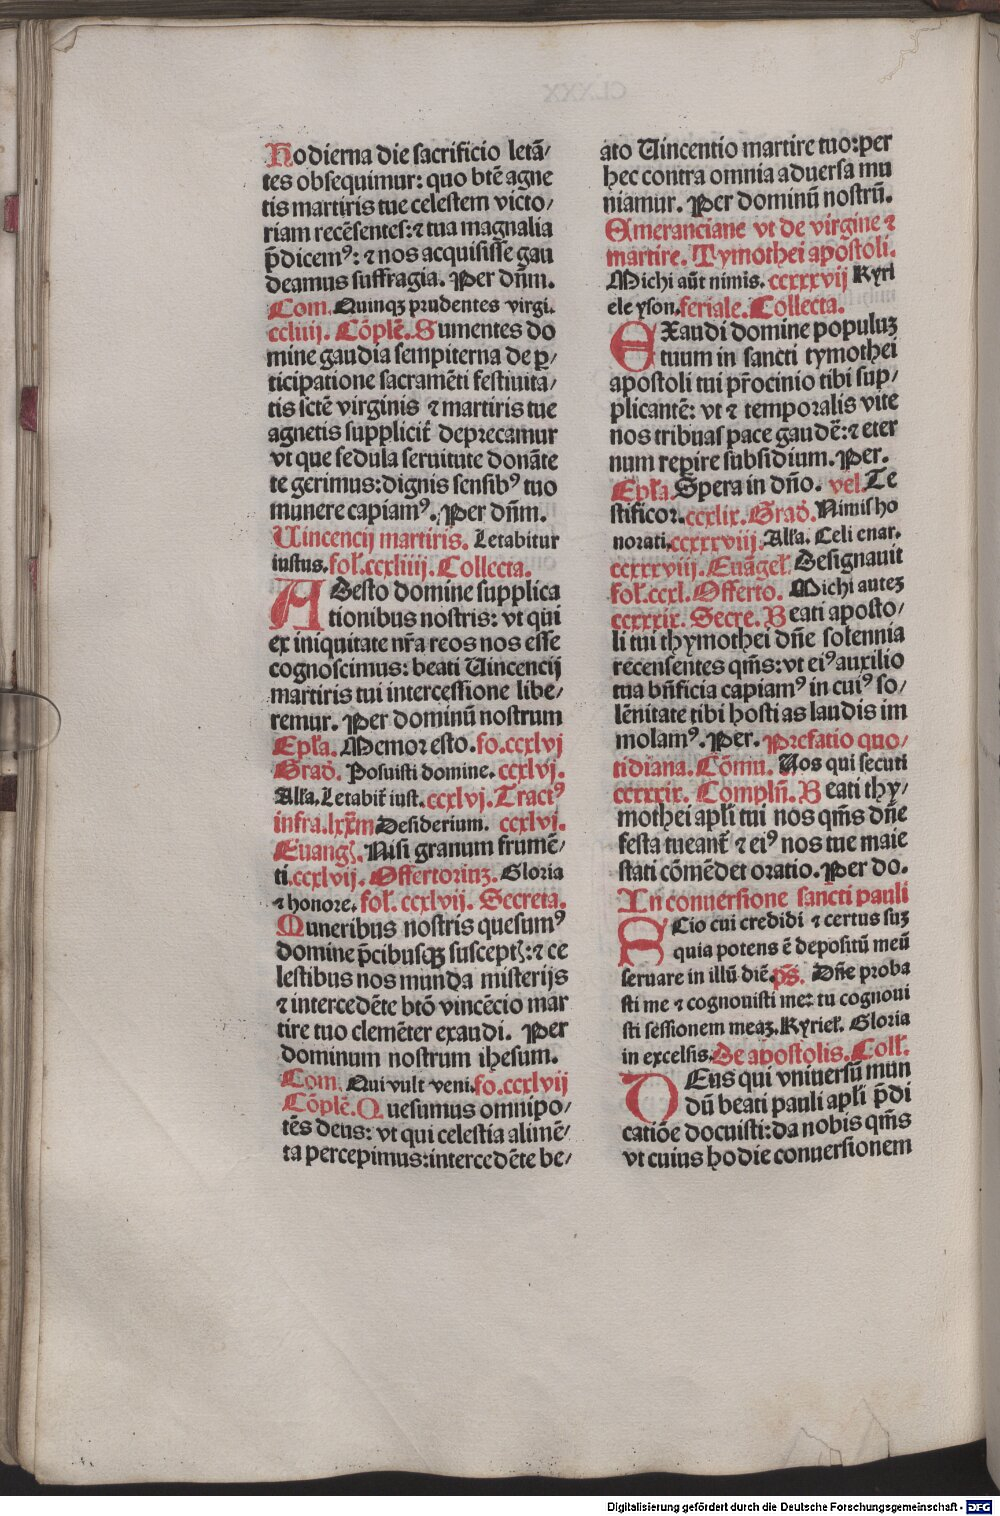 Hodierna die sacrificio letā/
tes obsequimur: quo btē agne
tis martiris tue celestem victo/
riam recēsentes: ⁊ tua magnalia
p̄dicemꝰ: ⁊ nos acquisisse gau
deamus suffragia. Per dn̄m.
Com. Quinqꝫ prudentes virgi.
ccliiij. Cōplē. Sumentes do
mine gaudia sempiterna de ꝑ/
ticipatione sacramēti festiuita/
tis sctē virginis ⁊ martiris tue
agnetis suppliciť deprecamur
vt que sedula seruitute donāte
te gerimus: dignis sensibꝰ tuo
munere capiamꝰ. Per dn̄m.
Uincencij martiris. Letabitur
iustus. fol. ccxliiij. Collecta.
ADesto domine supplica
tionibus nostris: vt qui
ex iniquitate nr̄a reos nos esse
cognoscimus: beati Uincencij
martiris tui intercessione libe/
remur. Per dominū nostrum
Epl̄a. Memor esto. fo. ccxlvj
Grad. Posuisti domine. ccxlvj.
All̄a. Letabiť iust. ccxlvj. Tractꝰ
infra. lxx̄m Desiderium. ccxlvj.
Euangꝭ. Nisi granum frumē/
ti. ccxlvij. Offertoriuꝫ. Gloria
⁊ honore. fol. ccxlvij. Secreta.
Muneribus nostris quesumꝰ
domine p̄cibusqꝫ susceptꝭ: ⁊ ce
lestibus nos munda misterijs
⁊ intercedēte btō vincēcio mar
tire tuo clemēter exaudi. Per
dominum nostrum ihesum.
Com. Qui vult veni. fo. ccxlvij
Cōplē. Quesumus omnipo/
tēs deus: vt qui celestia alimē/
ta percepimus: intercedēte be/
ato Uincentio martire tuo: per
hec contra omnia aduersa mu
niamur. Per dominū nostrū.
Emeranciane vt de virgine ⁊
martire. Tymothei apostoli.
Michi aūt nimis. ccxxxvij Kyri
ele yson. feriale. Collecta.
EXaudi domine populuꝫ
tuum in sancti tymothei
apostoli tui pr̄ocinio tibi sup/
plicantē: vt ⁊ temporalis vite
nos tribuas pace gaudē: ⁊ eter
num reꝑire subsidium. Per.
Epl̄a. Spera in dn̄o. vel. Te
stificor. ccxlix. Grad. Nimis ho
norati. ccxxxviij. All̄a. Celi enar.
ccxxxviij. Euāgel. Designauit
fol. ccxl. Offerto. Michi auteꝫ
ccxxxix. Secre. Beati aposto/
li tui thymothei dn̄e solennia
recensentes qm̄s: vt eiꝰ auxilio
tua bn̄ficia capiamꝰ in cuiꝰ so/
lēnitate tibi hostias laudis im
molamꝰ. Per. Prefatio quo/
tidiana. Cōmu. Uos qui secuti
ccxxxix. Compln̄. Beati thy/
mothei apl̄i tui nos qm̄s dn̄e
festa tueanť ⁊ eiꝰ nos tue maie
stati cōmēdet oratio. Per do.
In conuersione sancti pauli
SCio cui credidi ⁊ certus suꝫ
quia potens ē depositū meū
seruare in illū diē. ps̄. Dn̄e proba
sti me ⁊ cognouisti me: tu cognoui
sti sessionem meaꝫ. Kyriel. Gloria
in excelsis. De apostolis. Coll.
DEus qui vniuersū mun
dū beati pauli apl̄i p̄di
catiōe docuisti: da nobis qm̄s
vt cuius hodie conuersionem
Digitalisierung gefördert durch die Deutsche Forschungsgemeinschaft - DFG